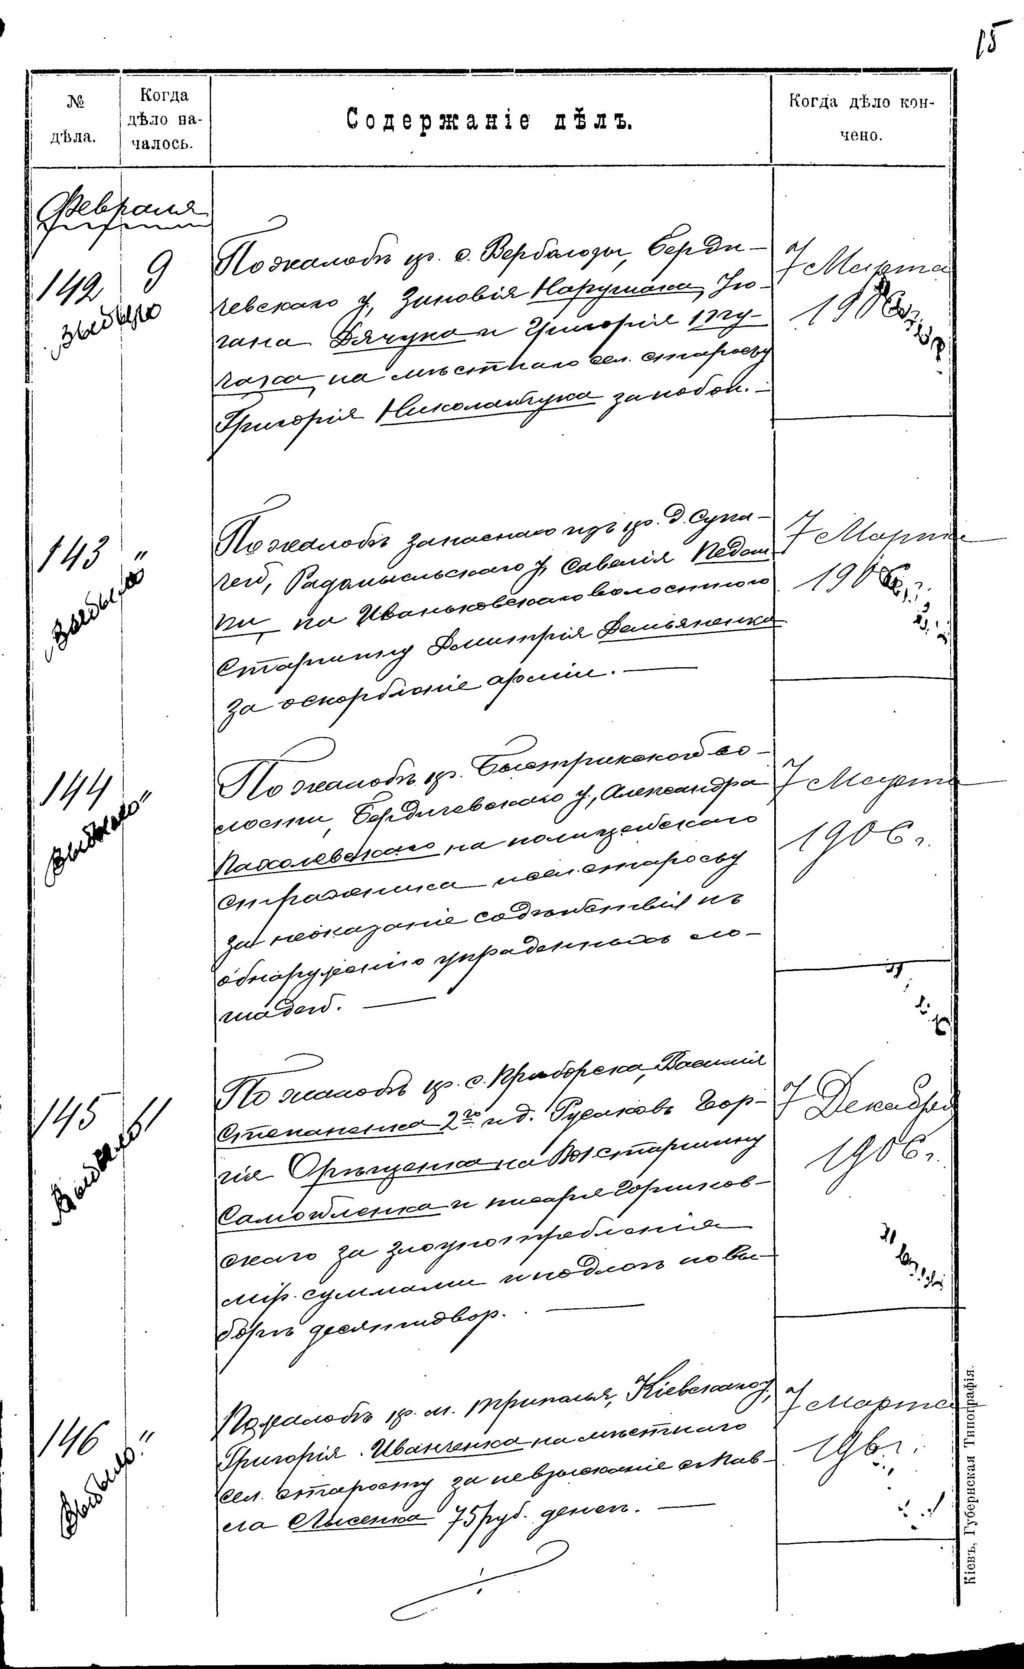 15
№ дѣла.
Когда дѣло началось.
Содержаніе дѣлъ.
Когда дѣло кончено.
Февраля
142 9 По жалобѣ кр. с. Вербологи, Берди-
чевскаго у, Зиновія
Дячука и Григорія
на мѣстнаго сел. старосту
Григорія Николайчука за побои.
Выбыло
7 Марта
1906 г.
143 " По жалобѣ запаснаго изъ кр. д.
Радомысльскаго у, Савелія
на Иваньковскаго волостного
Старшину Дмитрія Демьяненко
За оскорбленіе арміи.
Выбыло
7 Марта
1906 г.
144 По жалобѣ кр. Быстрикской во-
лости, Бердичевскаго у, Александра
Пахолевскаго на полицейскаго
стражника и сел. старосту
за неоказаніе содѣйствія къ
обнаруженію украденныхъ ло-
шадей.
"Выбыло"
7 Марта
1906 г.
145 11 По жалобѣ кр. с. Приборска, Василія
Степаненка 2го и д. Русаковъ Геор-
гія на Вол старшину
Самойленка и писаря Горшков-
скаго за злоупотребленія
мір. суммами и подлогъ по вы-
борѣ десятидвор.
Выбыло
7 Декабря
1906 г.
146 " По жалобѣ кр. м. Триполья, Кіевскаго у,
Григорія Иванченка на мѣстнаго
сел. старосту за невзысканіе с Пав-
ла Лысенка 75 руб. денег.
Выбыло
7 Марта
1906 г.
Кіевъ, Губернская Типографія.